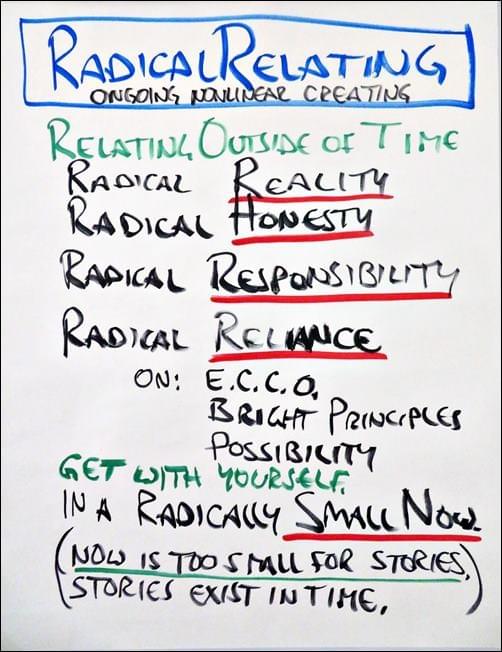 RADICAL RELATING
ONGOING NONLINEAR CREATING
RELATING OUTSIDE OF TIME
RADICAL REALITY
RADICAL HONESTY
RADICAL RESPONSIBILITY
RADICAL RELIANCE
ON: E.C.C.O.
BRIGHT PRINCIPLES
POSSIBILITY
GET WITH YOURSELF.
IN A RADICALLY SMALL NOW.
(NOW IS TOO SMALL FOR STORIES.
STORIES EXIST IN TIME.)